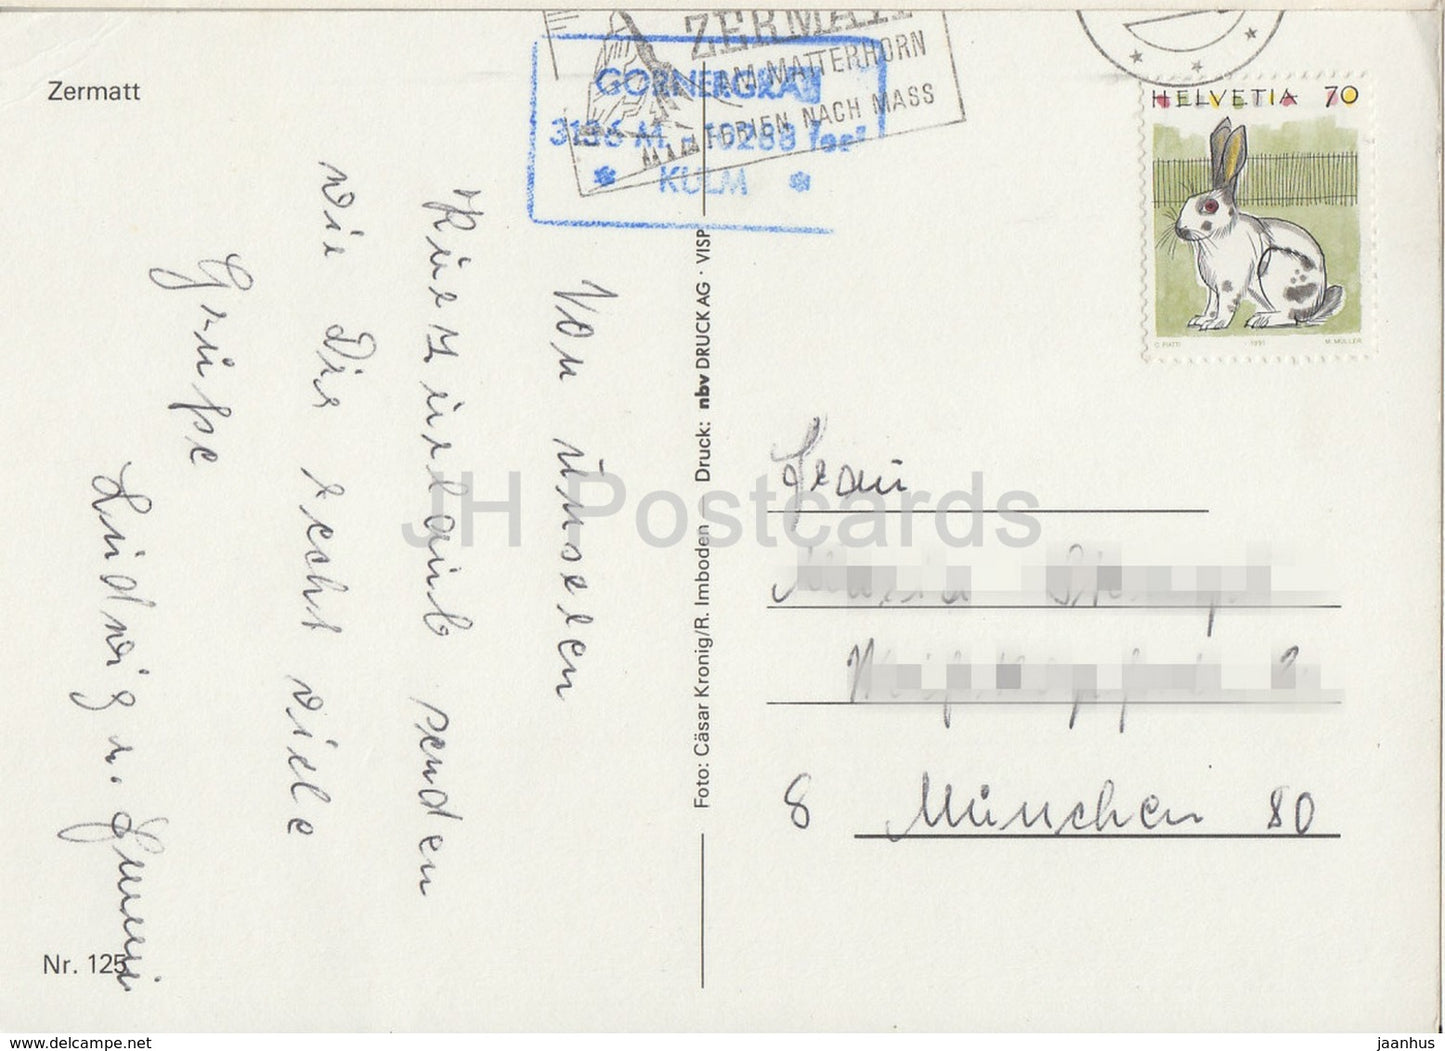 Zermatt
ZERMATT
AM MATTERHORN
FERIEN NACH MASS
GORNERGRAT
3136 M. 10288 feet
* KULM *
HELVETIA 70
C. PIATTI 1991 M. MÜLLER
Von unseren
Kurzurlaub senden
wir Dir recht viele
Grüße
Ludwig u.
Nr. 125
Foto: Cäsar Kronig/R. Imboden Druck: nbv DRUCK AG · VISP
Frau
8 München 80
JH Postcards
www.delcampe.net
jaanhus